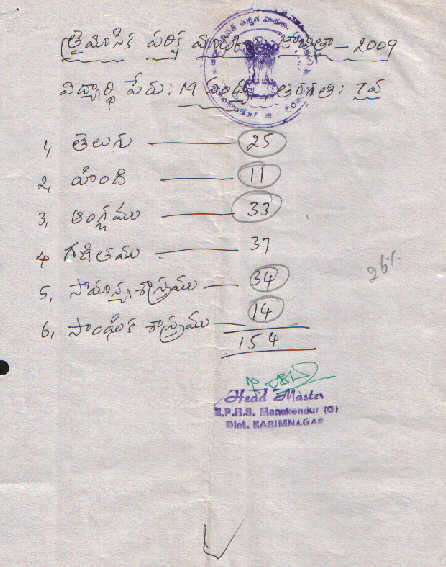 త్రైమాసిక పరీక్ష జాబితా - 2009
విద్యార్థి పేరు: M తరగతి: 7వ
1, తెలుగు 25
2, హింది 11
3, ఆంగ్లము 33
4 గణితము 37
5, సామాన్యశాస్త్రము 34
6, సాంఘిక శాస్త్రము 14
154
26%
Head Master
Z.P.H.S. Manakondur (G)
Dist. KARIMNAGAR